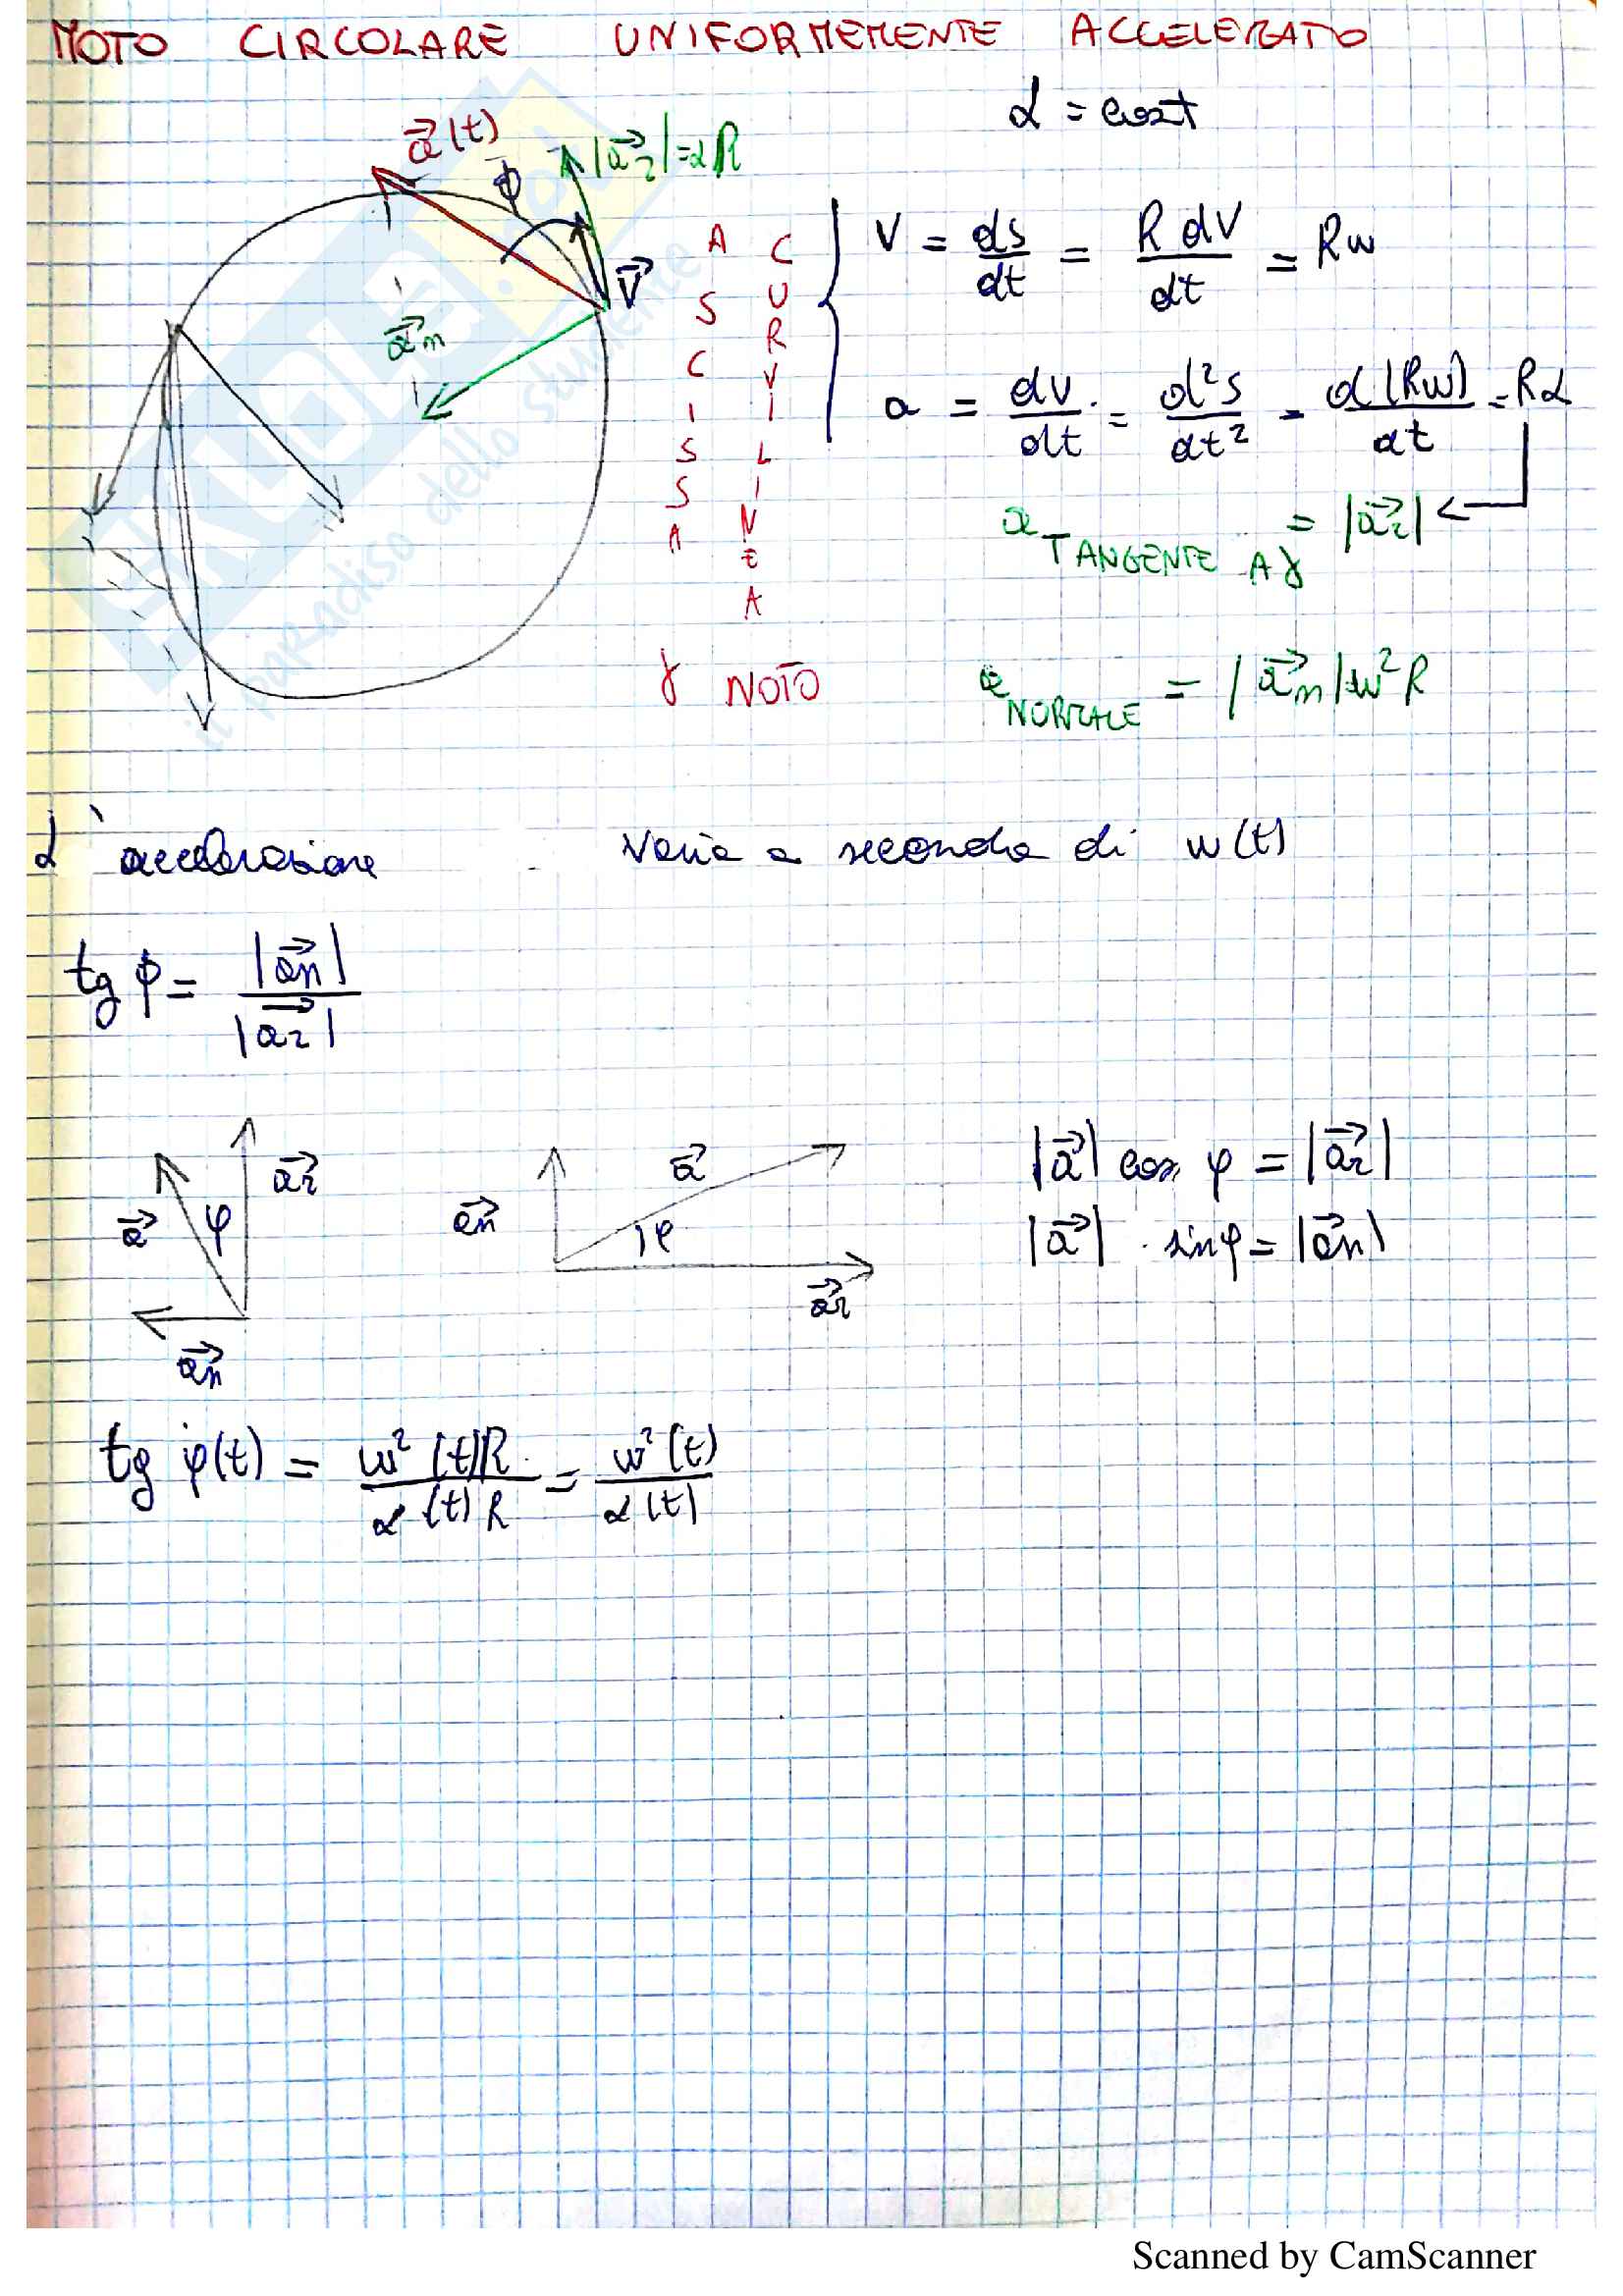 MOTO CIRCOLARE UNIFORMEMENTE ACCELERATO
α = cost
a⃗(t)
φ
|a⃗τ| = αR
V⃗
a⃗n
ASCISSA CURVILINEA
V = ds/dt = R dV/dt = Rω
a = dv/dt = d²s/dt² = d(Rω)/dt = Rα
a TANGENTE A γ = |a⃗τ|
γ NOTO
a NORMALE = |a⃗n| ω²R
L'accelerazione varia a seconda di ω(t)
tg φ = |a⃗n| / |a⃗τ|
a⃗τ
a⃗
φ
a⃗n
a⃗n
a⃗
φ
a⃗τ
|a⃗| cos φ = |a⃗τ|
|a⃗| · sin φ = |a⃗n|
tg φ(t) = ω²(t)R / α(t)R = ω²(t) / α(t)
SKUOLA.net
il paradiso dello studente
Scanned by CamScanner